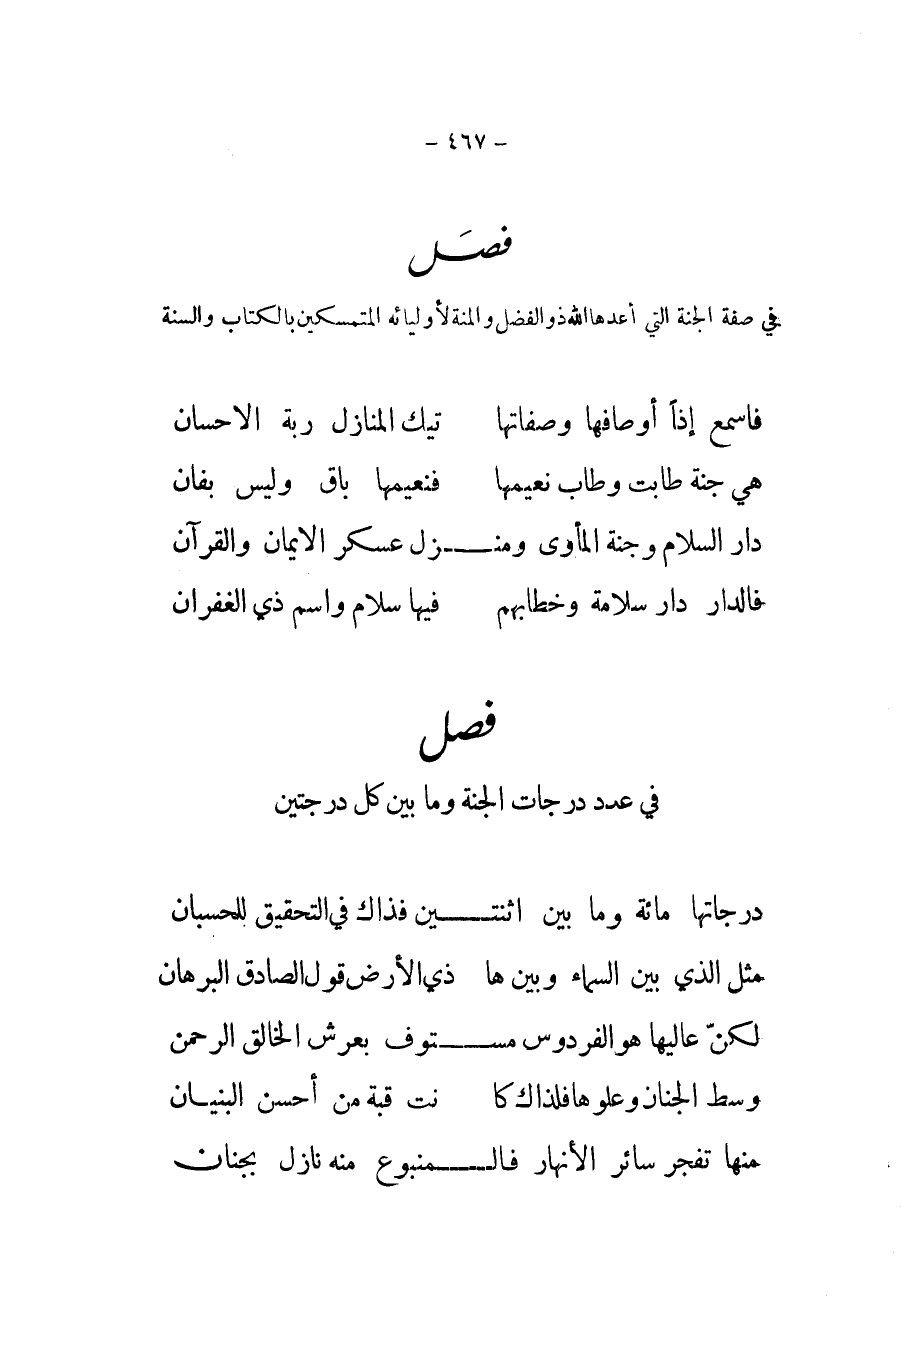 - ٤٦٧ -
فصَل
في صفة الجنة التي أعدها الله ذو الفضل والمنة لأوليائه المتمسكين بالكتاب والسنة
فاسمع إذاً أوصافها وصفاتها تيك المنازل ربة الاحسان
هي جنة طابت وطاب نعيمها فنعيمها باق وليس بفان
دار السلام وجنة المأوى ومنـــزل عسكر الايمان والقرآن
فالدار دار سلامة وخطابهم فيها سلام واسم ذي الغفران
فصل
في عدد درجات الجنة وما بين كل درجتين
درجاتها مائة وما بين اثنتـــين فذاك في التحقيق للحسبان
مثل الذي بين السماء وبين ها ذي الأرض قول الصادق البرهان
لكنّ عاليها هو الفردوس مســـتوف بعرش الخالق الرحمن
وسط الجنان وعلوها فلذاك كا نت قبة من أحسن البنيان
منها تفجر سائر الأنهار فالـــمنبوع منه نازل بجنان